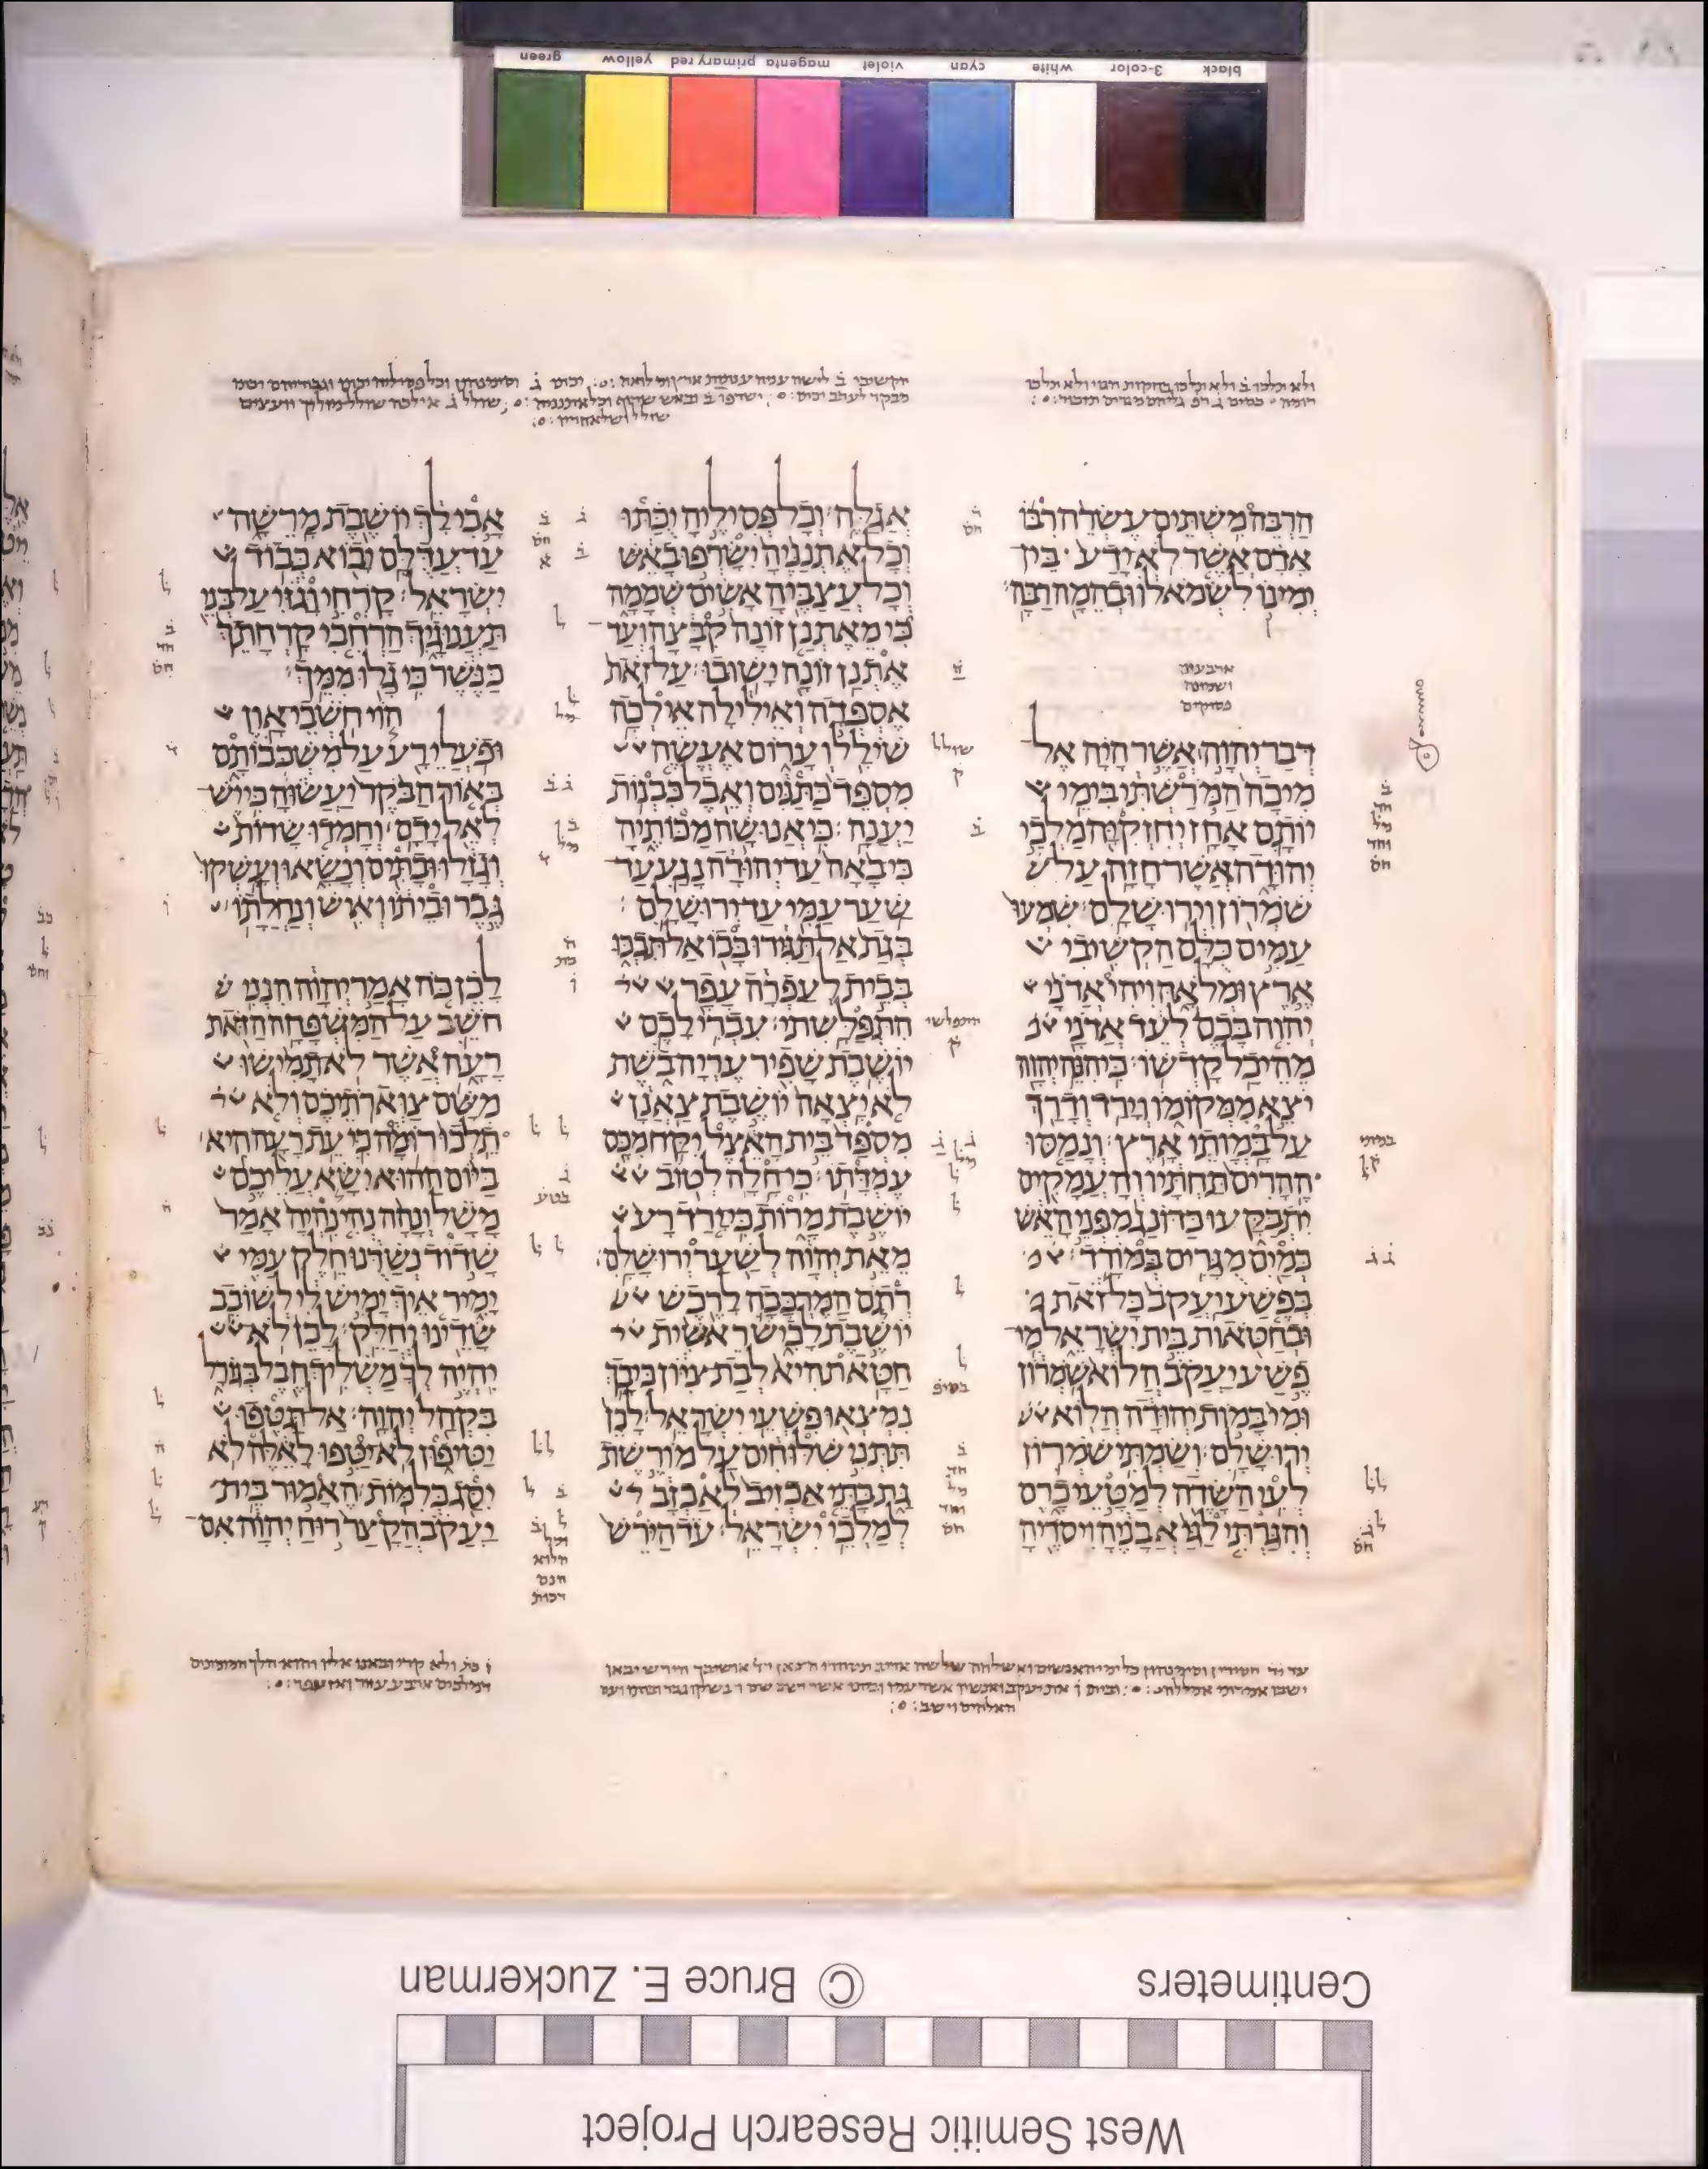 green yellow primary red magenta violet cyan white 3-color black
הרבה משתים עשרה רבו
אדם אשר לא ידע בין
ימינו לשמאלו ובהמה רבה׃
ארבעים
ושמונה
פסוקים
דבר יהוה אשר היה אל
מיכה המרשתי בימי
יותם אחז יחזקיה מלכי
יהודה אשר חזה על
שמרון וירושלם׃ שמעו
עמים כלם הקשיבי
ארץ ומלאה ויהי אדני
יהוה בכם לעד אדני
מהיכל קדשו׃ כי הנה יהוה
יצא ממקומו וירד ודרך
על במותי ארץ׃ ונמסו
ההרים תחתיו והעמקים
יתבקעו כדונג מפני האש
כמים מגרים במורד׃
בפשע יעקב כל זאת
ובחטאות בית ישראל מי
פשע יעקב הלוא שמרון
ומי במות יהודה הלוא
ירושלם׃ ושמתי שמרון
לעי השדה למטעי כרם
והגרתי לגי אבניה ויסדיה
אגלה׃ וכל פסיליה יכתו
וכל אתנניה ישרפו באש
וכל עצביה אשים שממה
כי מאתנן זונה קבצה ועד
אתנן זונה ישובו׃ על זאת
אספדה ואילילה אילכה
שילל וערום אעשה
מספד כתנים ואבל כבנות
יענה׃ כי אנושה מכותיה
כי באה עד יהודה נגע עד
שער עמי עד ירושלם׃
בגת אל תגידו בכו אל תבכו
בבית לעפרה עפר
התפלשתי׃ עברי לכם
יושבת שפיר עריה בשת
לא יצאה יושבת צאנן
מספד בית האצל יקח מכם
עמדתו׃ כי חלה לטוב
יושבת מרות כי ירד רע
מאת יהוה לשער ירושלם׃
רתם המרכבה לרכש
יושבת לכיש ראשית
חטאת היא לבת ציון כי בך
נמצאו פשעי ישראל׃ לכן
תתני שלוחים על מורשת
גת בתי אכזיב לאכזב
למלכי ישראל׃ עד הירש
אבי לך יושבת מרשה
עד עדלם יבוא כבוד
ישראל׃ קרחי וגזי על בני
תענוגיך הרחבי קרחתך
כנשר כי גלו ממך׃
הוי חשבי און
ופעלי רע על משכבותם
באור הבקר יעשוה כי יש
לאל ידם׃ וחמדו שדות
וגזלו ובתים ונשאו ועשקו
גבר וביתו ואיש ונחלתו׃
לכן כה אמר יהוה הנני
חשב על המשפחה הזאת
רעה אשר לא תמישו
משם צוארתיכם ולא
תלכו רומה כי עת רעה היא׃
ביום ההוא ישא עליכם
משל ונהה נהי נהיה אמר
שדוד נשדנו חלק עמי
ימיר איך ימיש לי לשובב
שדינו יחלק׃ לכן לא
יהיה לך משליך חבל בגורל
בקהל יהוה׃ אל תטפו
יטיפון לא יטפו לאלה לא
יסג כלמות׃ האמור בית
יעקב הקצר רוח יהוה אם
שולל
ק
התפלשי
ק
במותי
ק
Centimeters
© Bruce E. Zuckerman
West Semitic Research Project